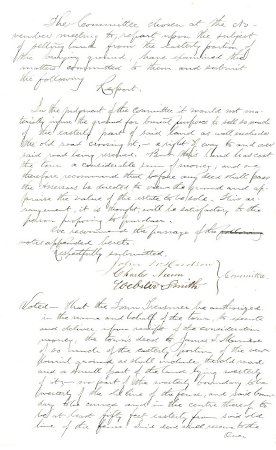 The Committee chosen at the No-
vember meeting to report upon the subject
of selling land from the easterly portion
the burying ground, have examined the
matter committed to them and submit
the following
Report.
In the judgment of the Committee it would not ma-
terially injure the ground for burial purposes to sell so much
of the easterly part of said land as will include
the old road crossing it, a right of way to and over
said road being reserved. land cost
the town a considerable sum of money, and we
therefore recommend that before any deed shall pass
the be directed to view the ground and ap-
praise the value of the estate to be sold. This ar-
rangement, it is thought will be satisfactory to the
person proposing to purchase.
We recommend the passage of the
vote appended hereto.
Respectfully submitted,
Charles
Webster Smith
Committee
Voted - That the Town Treasurer be authorized
in the name and behalf of the town, to execute
and deliver upon receipt of the consideration
money, the town's deed to James
of so much of the easterly portion of the new
burial ground as shall include the old road
and a small part of the land lying westerly
of it, no part of the westerly boundary to be
westerly of the line of the fence, and said boun-
dary to be and in the centre thereof to
be at least fifty feet easterly from said old
line of the fence. Said deed shall reserve to the